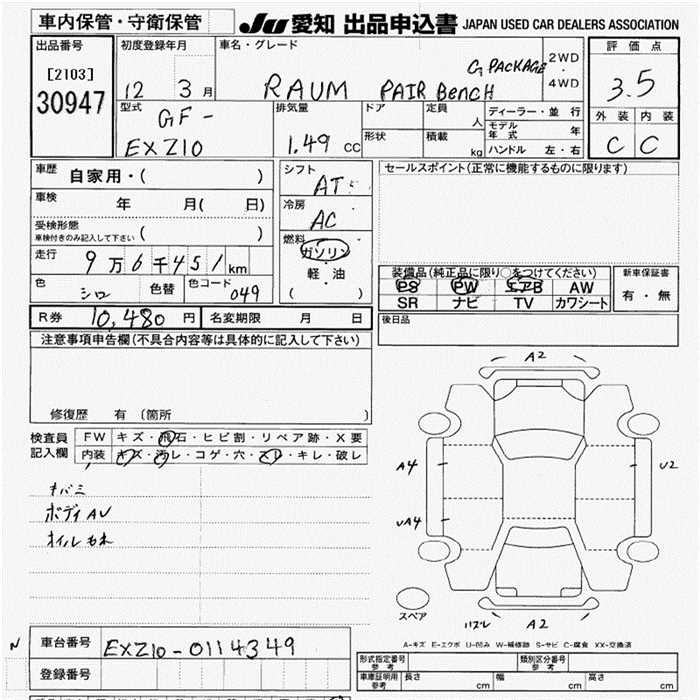 車内保管・守衛保管 JU 愛知 出品申込書 JAPAN USED CAR DEALERS ASSOCIATION
出品番号
[2103]
30947
初度登録年月
12 3 月
車名・グレード
RAUM PAIR BencH G PACKAGE
2WD
・
4WD
評価点
3.5
外装 内装
C C
型式
GF-
EXZ10
排気量
1.49 CC
ドア
形状
定員 人
積載 kg
ディーラー・並行
モデル年式 年
ハンドル 左・右
車歴 自家用・( )
車検 年 月( 日)
受検形態
車検付きのみ記入して下さい ( )
走行 9万6千451km
色 シロ 色替 色コード 049
シフト
AT
冷房
AC
燃料
ガソリン
・
軽・油
( )
セールスポイント(正常に機能するものに限ります)
装備品(純正品に限り○をつけてください)
PS PW エアB AW
SR ナビ TV カワシート
新車保証書
有・無
R券 10,480円 名変期限 月 日
後日品
注意事項申告欄(不具合内容等は具体的に記入して下さい)
修復歴 有 〔箇所 〕
検査員
記入欄
FW キズ・飛石・ヒビ割・リペア跡・X要
内装 キズ・汚レ・コゲ・穴・スレ・キレ・破レ
キバミ
ボディAU
オイルもれ
A2
A4
U2
UA4
スペア
ハズレ A2
A-キズ E-エクボ U-凹み W-補修跡 S-サビ C-腐食 XX-交換済
N
車台番号 EXZ10-0114349
登録番号
形式指定番号
参考
類別区分番号
参考
車庫証明用
参考
長さ cm 幅 cm 高さ cm